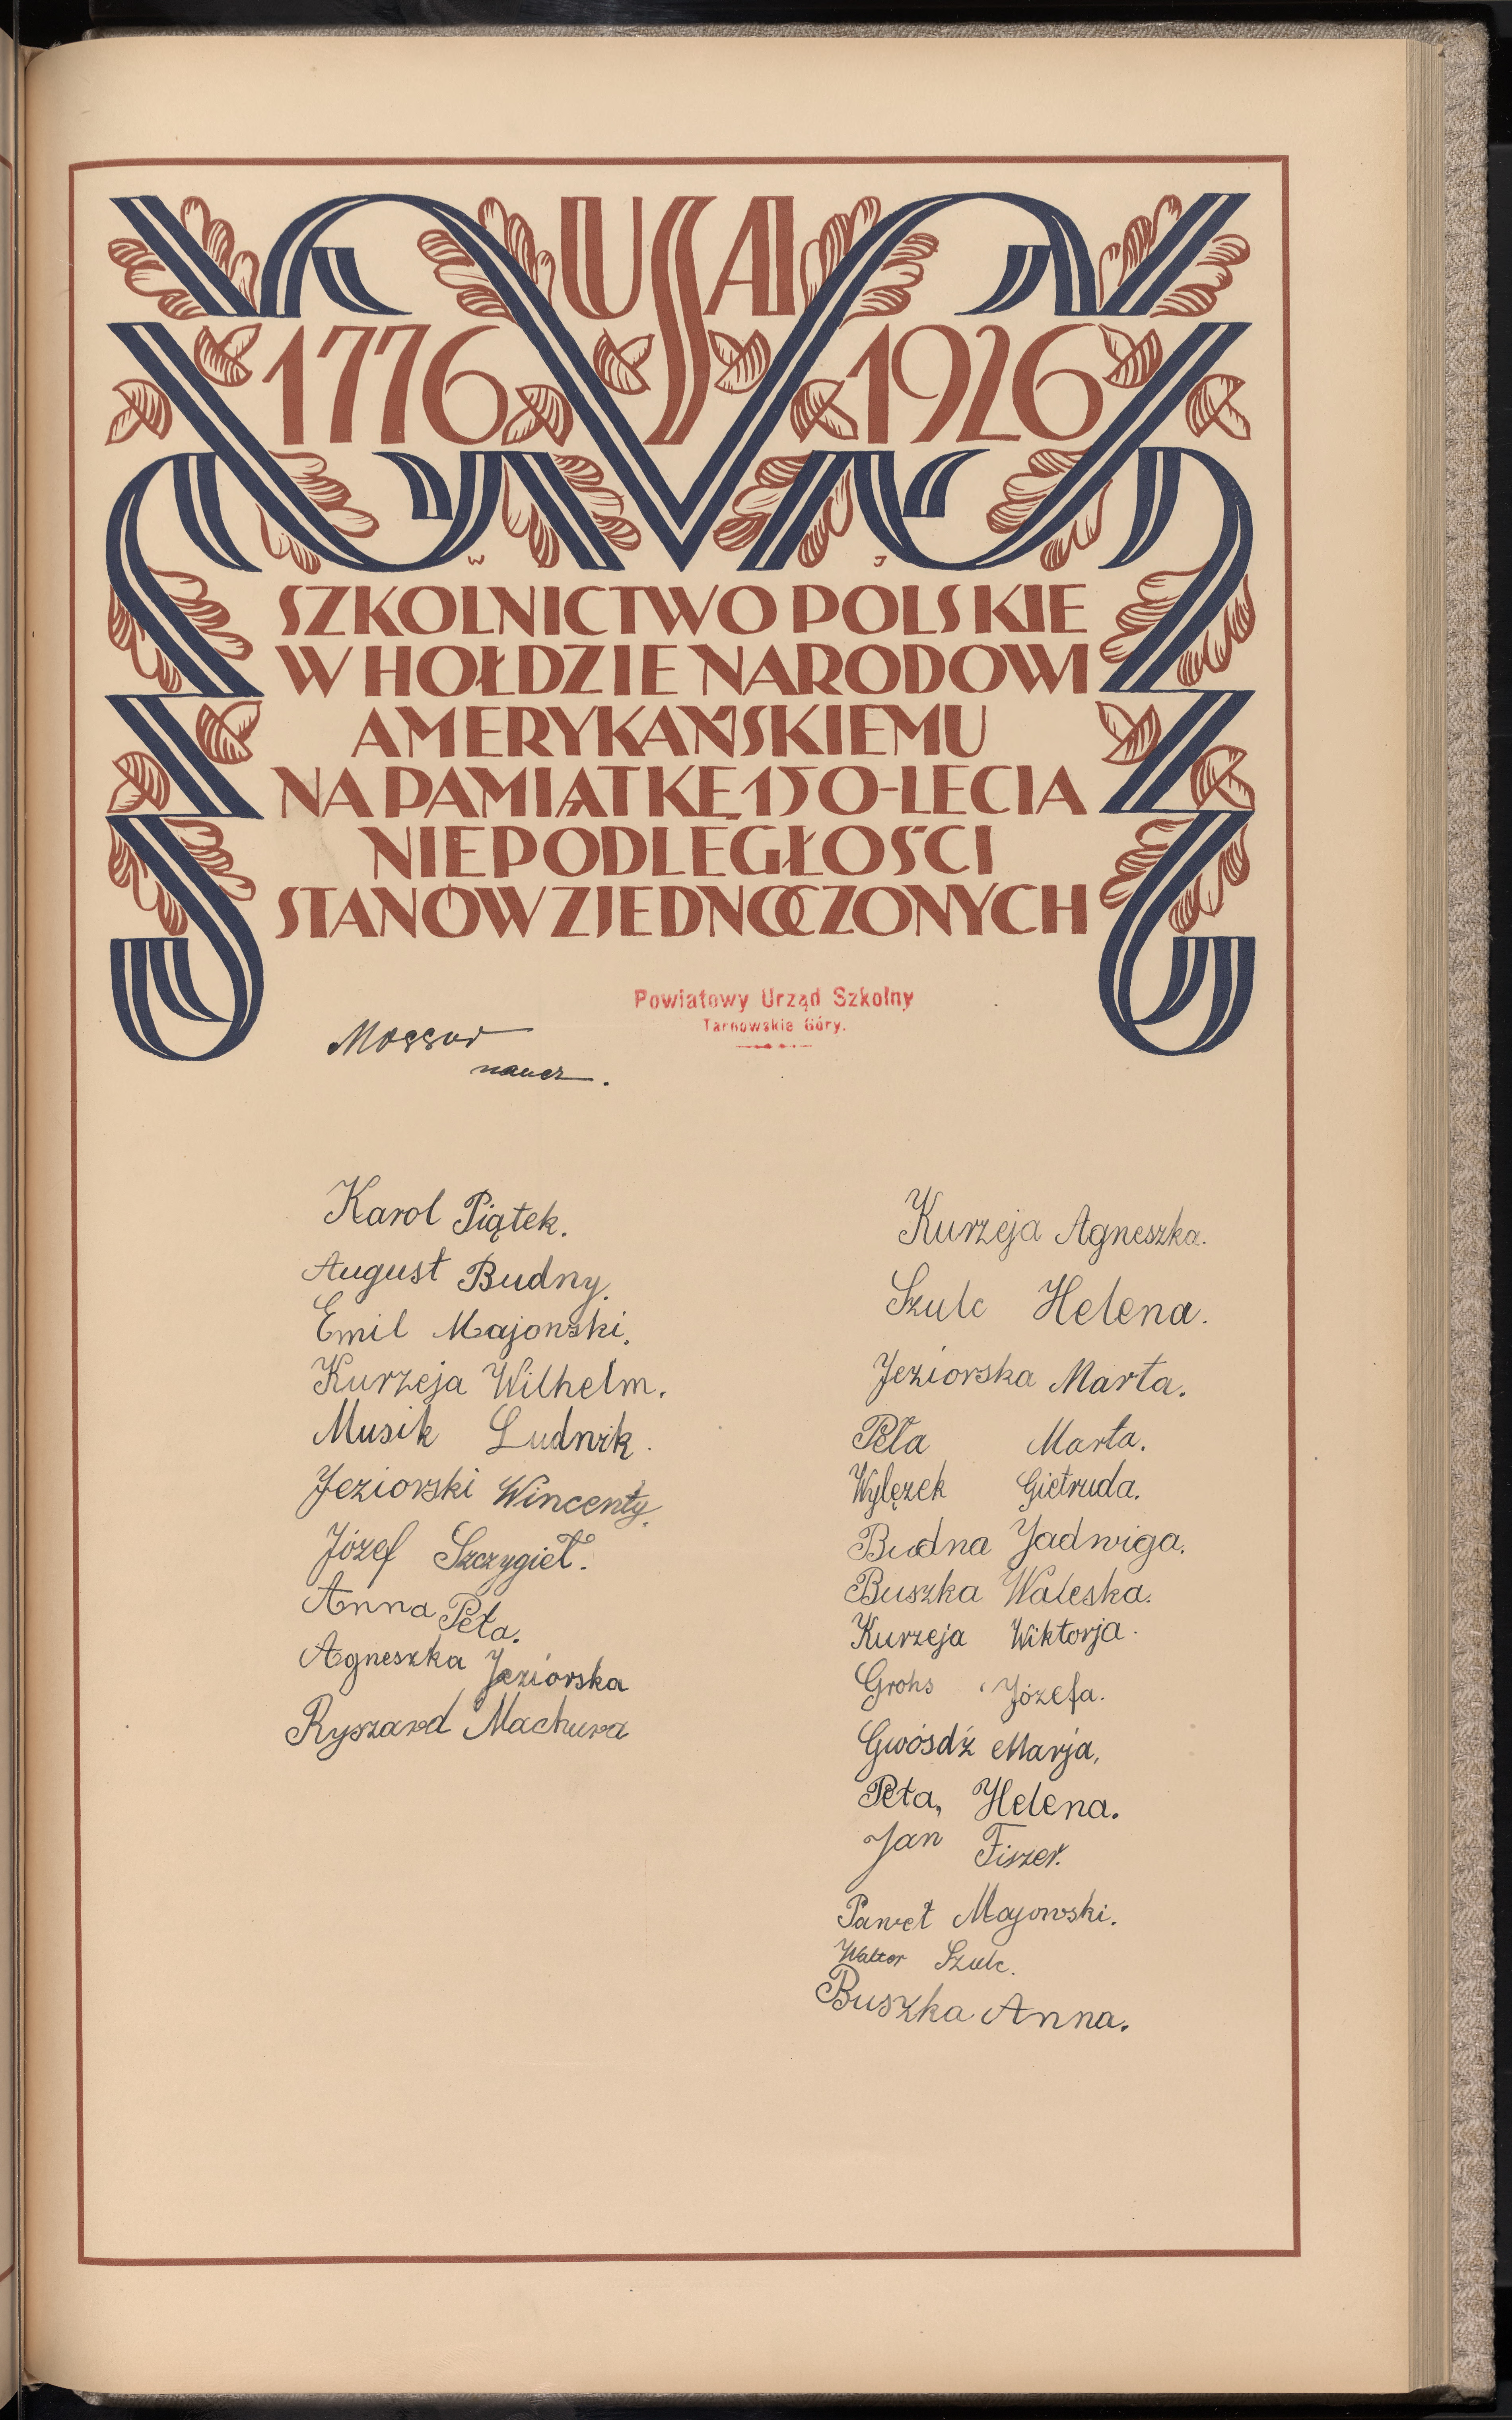 USA
1776 1926
W J
SZKOLNICTWO POLSKIE
W HOŁDZIE NARODOWI
AMERYKAŃSKIEMU
NA PAMIĄTKĘ 150-LECIA
NIEPODLEGŁOŚCI
STANÓW ZJEDNOCZONYCH
Powiatowy Urząd Szkolny
Tarnowskie Góry.
Mossor
naucz.
Karol Piątek.
August Budny.
Emil Majowski.
Kurzeja Wilhelm.
Musik Ludwik.
Jeziorski Wincenty.
Józef Szczygieł.
Anna Peta.
Agneszka Jeziorska
Ryszard Machura
Kurzeja Agneszka.
Szulc Helena.
Jeziorska Marta.
Peta Marta.
Wylęzek Gietruda.
Budna Jadwiga.
Buszka Waleska.
Kurzeja Wiktorja.
Grohs Józefa.
Gwósdź Marja.
Peta, Helena.
Jan Fiszer.
Paweł Majowski.
Walter Szulc.
Buszka Anna.